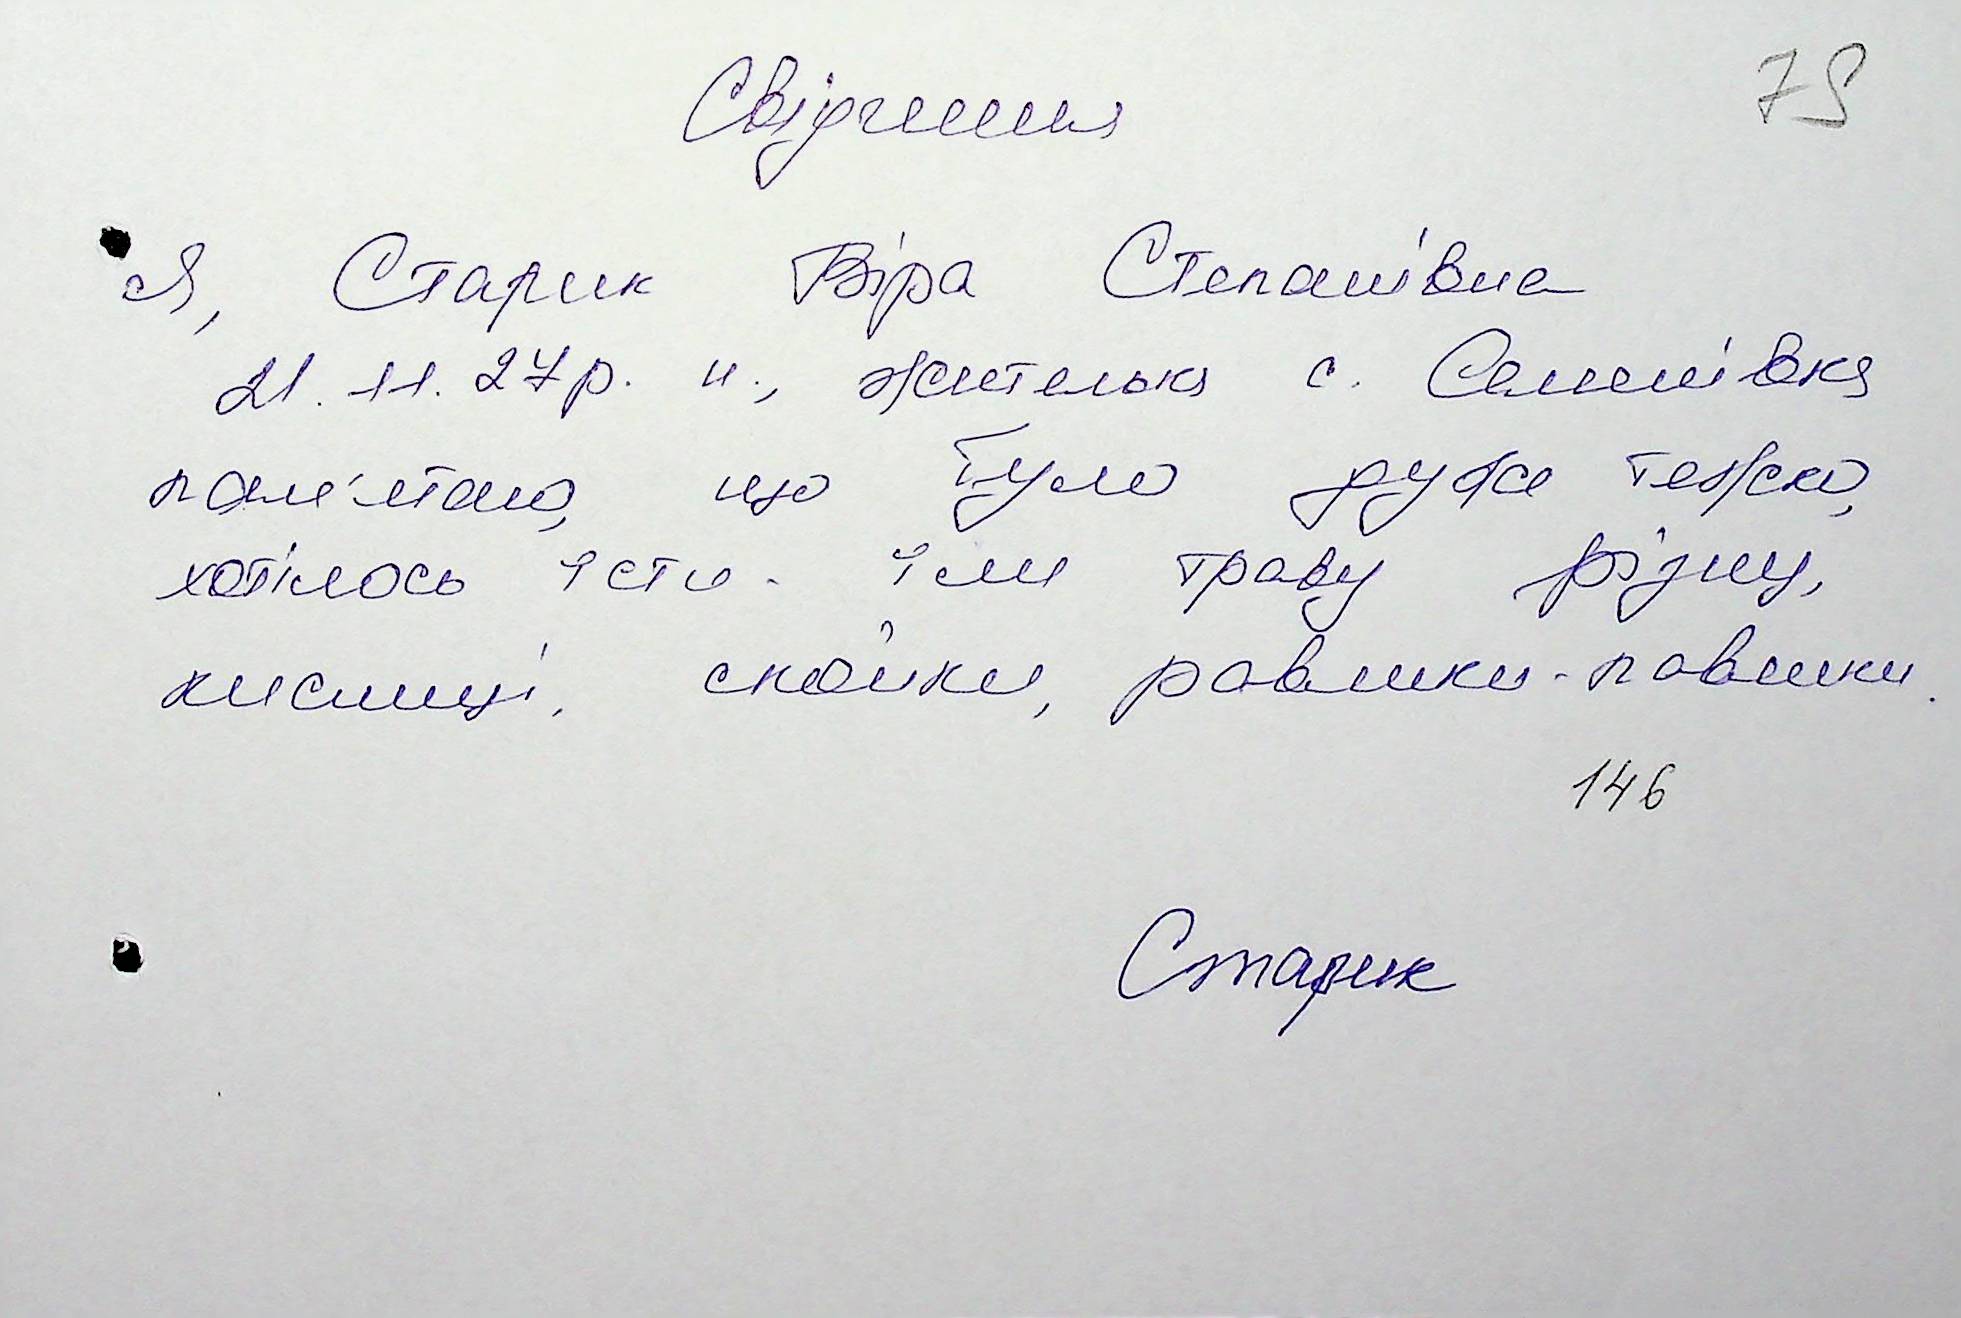 Свідчення
75
Я, Старик Віра Степанівна
21.11.27р. н., жителька с. Семенівка
пам'ятаю, що було дуже тежко,
хотілось їсти. Їли траву різну,
кислиці, скойки, равлики-павлики.
146
Старик